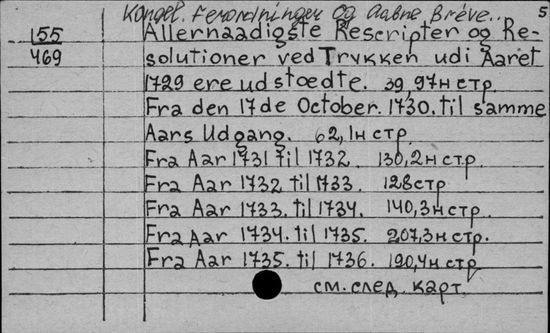 Kongel. Ferordninger Og Aabne Breve.. 5
155 Allernaadigste Rescripter og Re-
469 solutioner ved Trykken udi Aaret
1729 ere udstoedte. 39, 97н стр.
Fra den 17de October. 1730. til samme
Aars Udgang. 62,1н стр.
Fra Aar 1731 til 1732. 130,2н стр.
Fra Aar 1732 til 1733. 128стр
Fra Aar 1733. til 1734. 140,3н стр.
Fra Aar 1734. til 1735. 207,3н стр.
Fra Aar 1735. til 1736. 190,4н стр
см. след. карт.